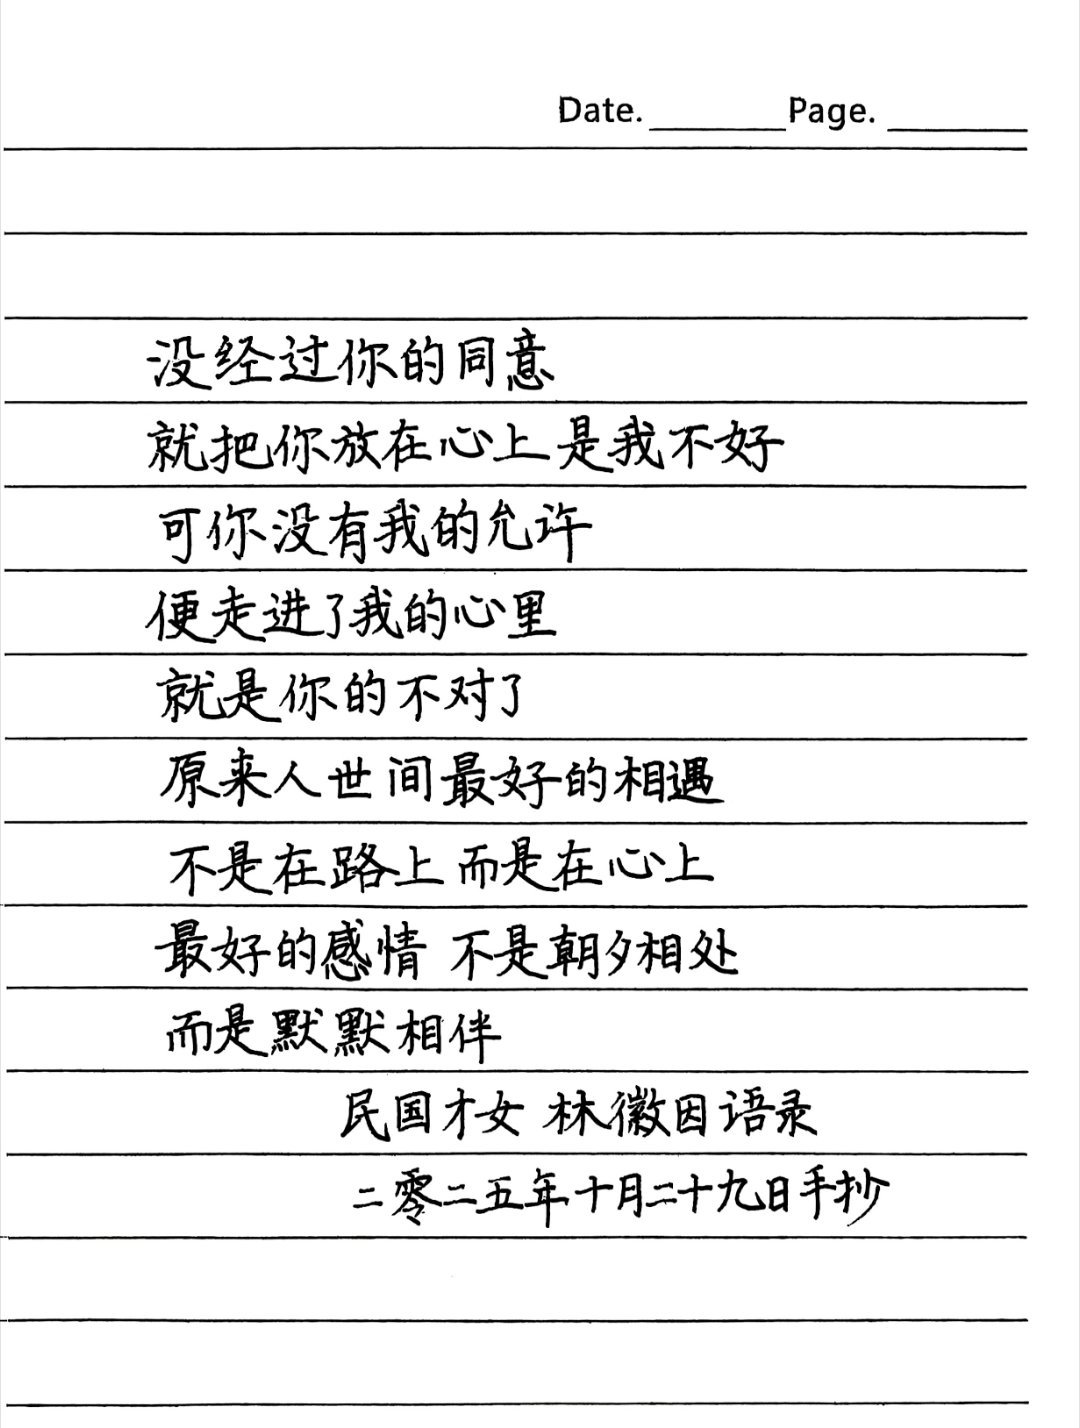 Date. Page.
没经过你的同意
就把你放在心上 是我不好
可你没有我的允许
便走进了我的心里
就是你的不对了
原来人世间最好的相遇
不是在路上 而是在心上
最好的感情 不是朝夕相处
而是默默相伴
民国才女 林徽因语录
二零二五年十月二十九日手抄